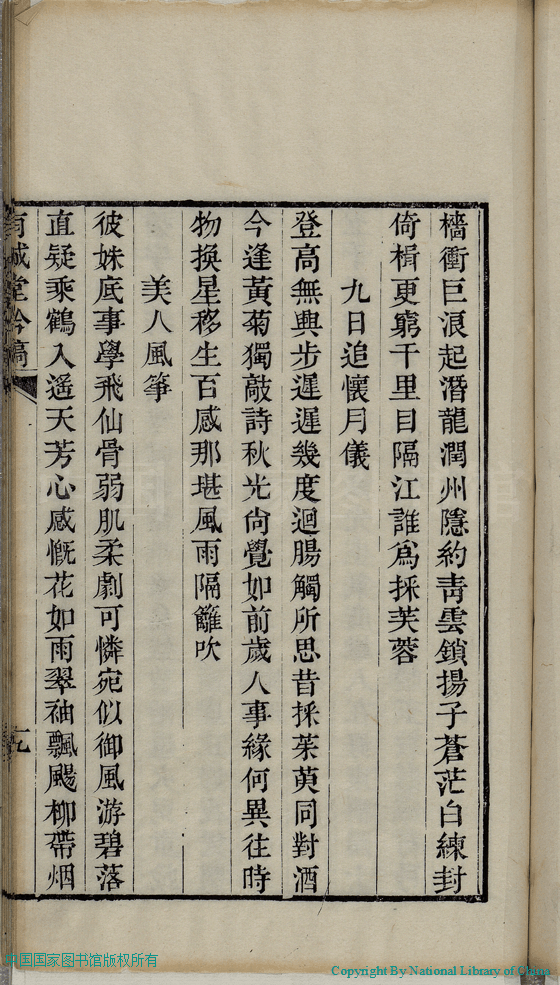 檣衝巨浪起潛龍潤州隱約青雲鎖揚子蒼茫白練封
倚楫更窮千里目隔江誰爲採芙蓉
九日追懷月儀
登高無興步遲遲幾度迴腸觸所思昔採茱萸同對酒
今逢黃菊獨敲詩秋光尙覺如前歲人事緣何異往時
物換星移生百感那堪風雨隔籬吹
美人風箏
彼姝底事學飛仙骨弱肌柔劇可憐宛似御風游碧落
直疑乘鶴入遙天芳心感慨花如雨翠袖飄颺柳帶烟
有誠堂吟稿
中国国家图书馆版权所有
Copyright By National Library of China